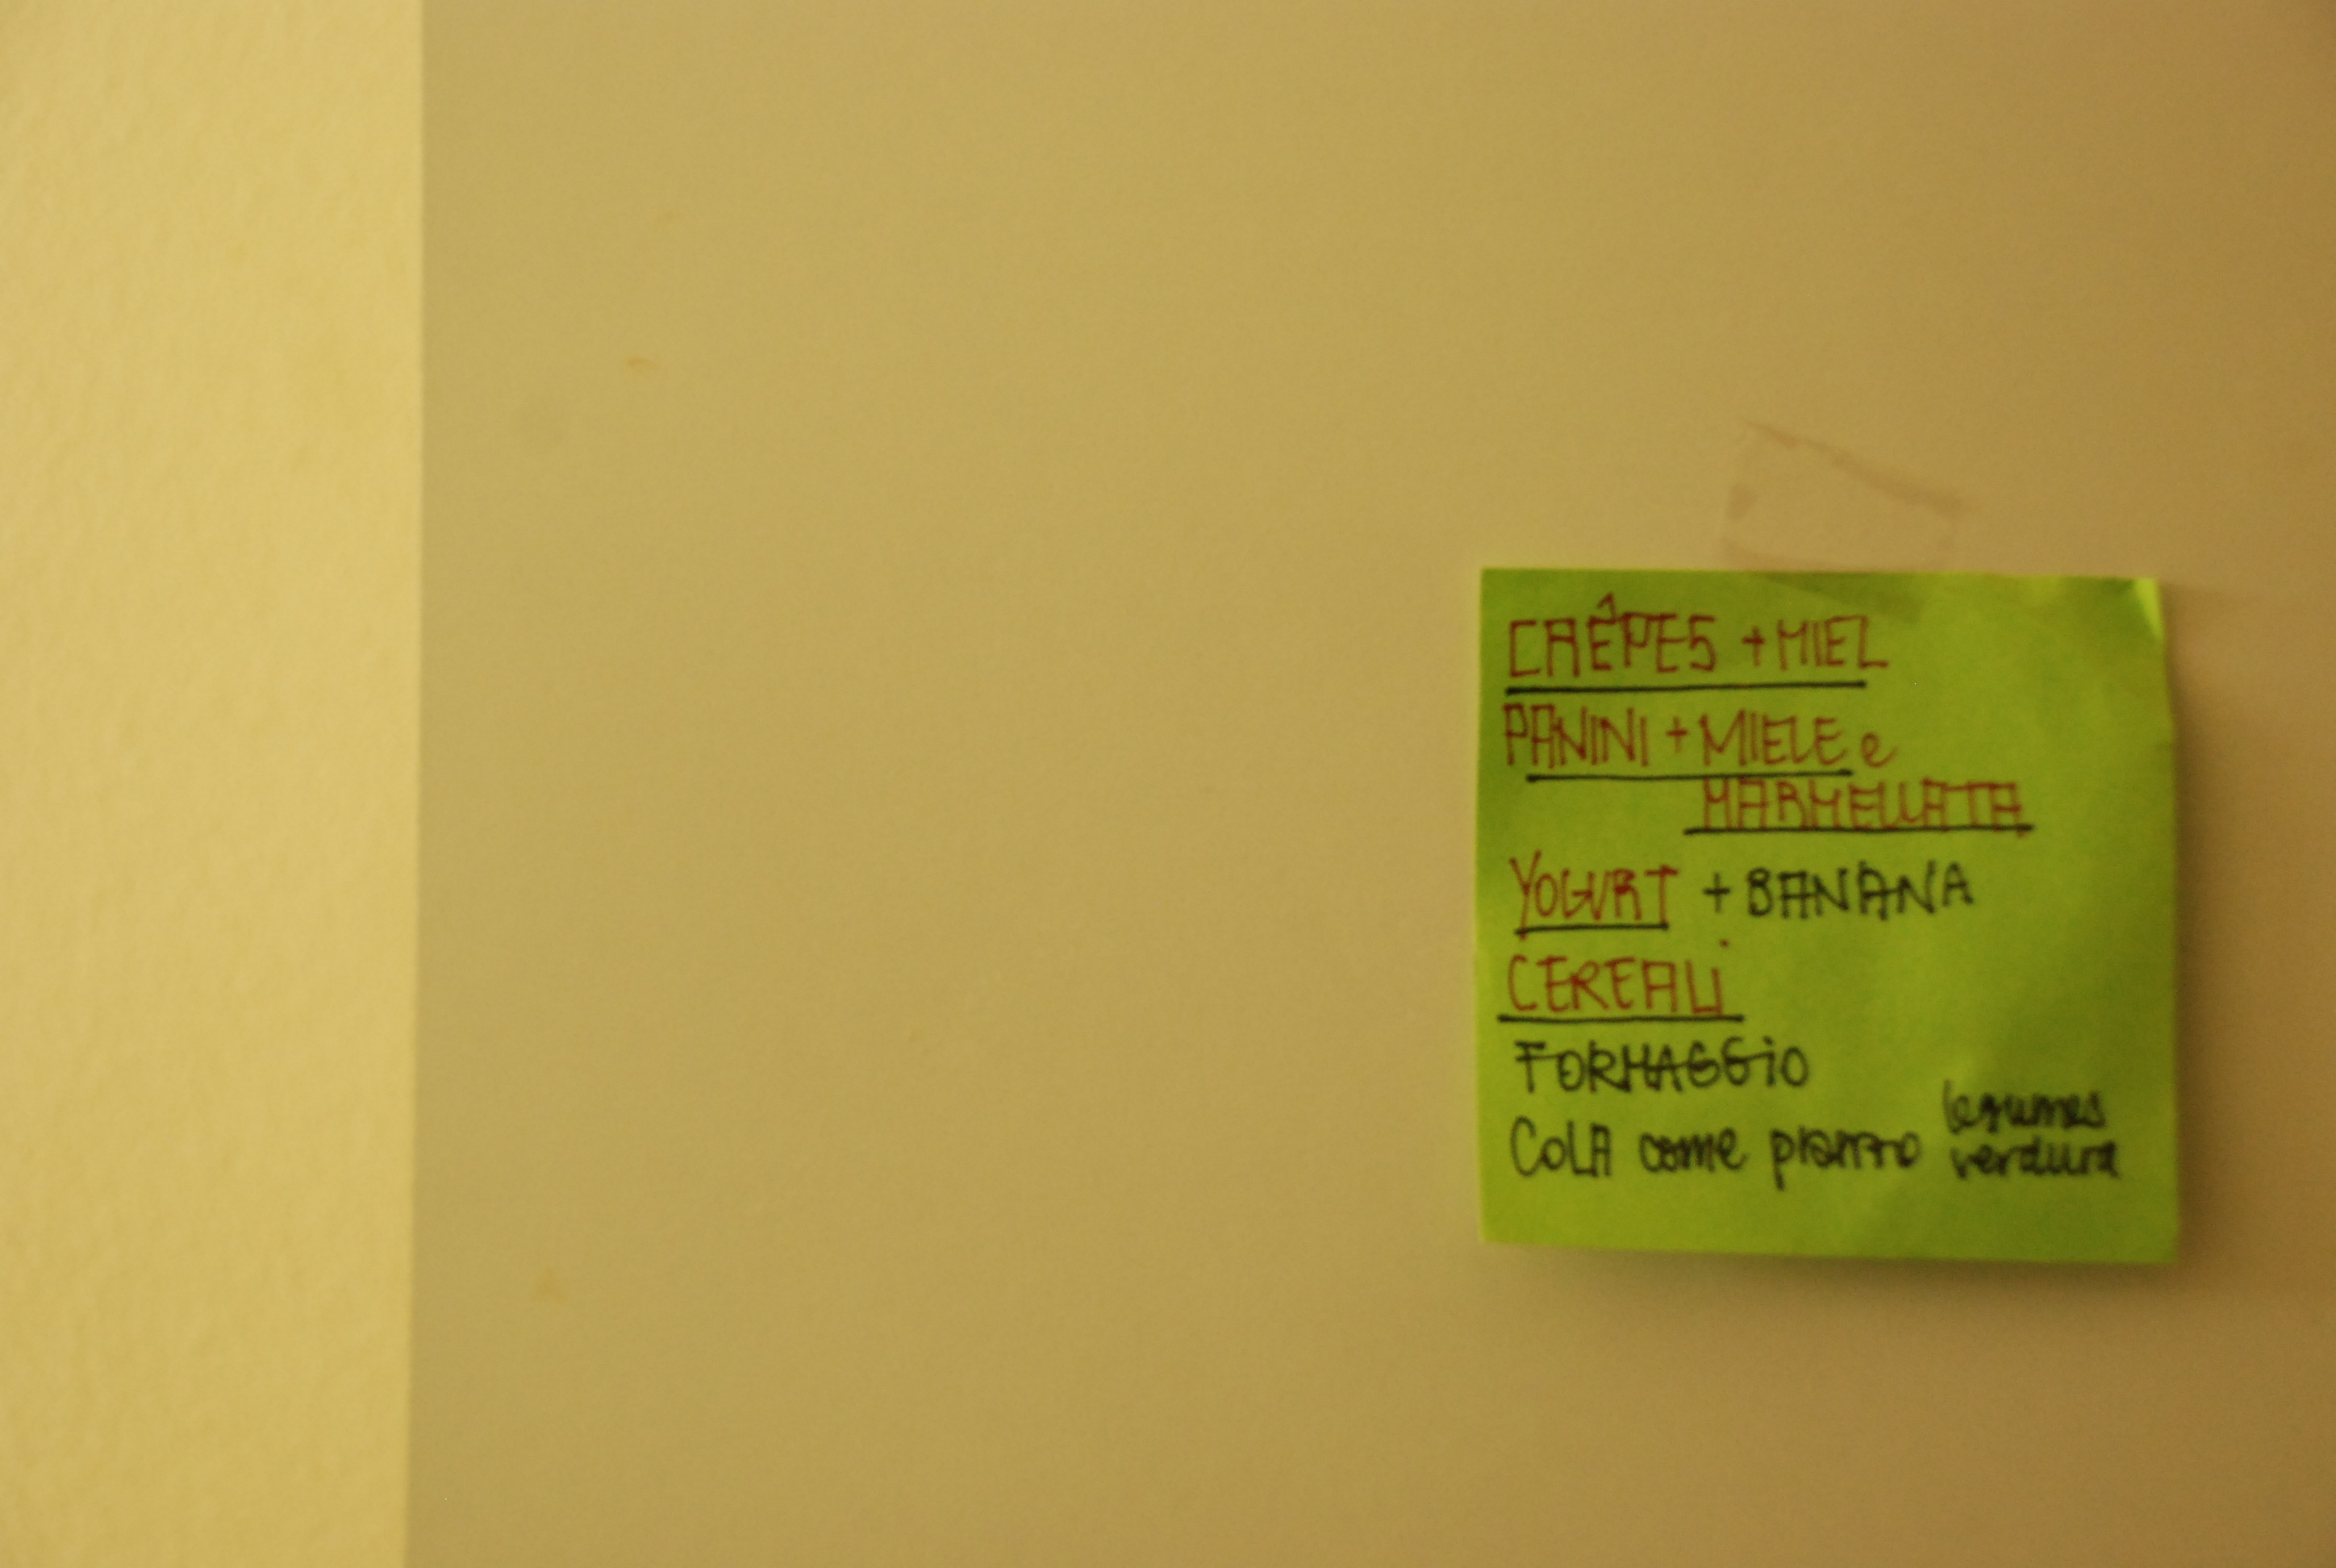 CRÊPES + MIEL
PANINI + MIELE e
MARMELLATA
YOGURT + BANANA
CEREALi
FORMAGGiO
COLA come pranzo legumes
verdura